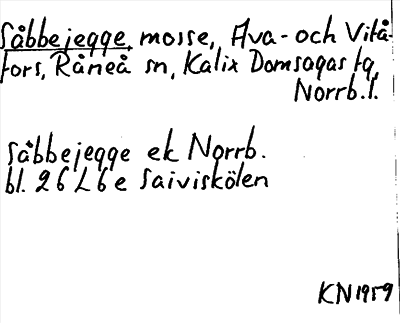 Såbbejegge, mosse, Ava- och Vitå-
fors, Råneå sn, Kalix Domsagas tg,
Norrb.l.
Såbbejegge ek Norrb.
bl. 26 L 6 e Saiviskölen
KN 1959